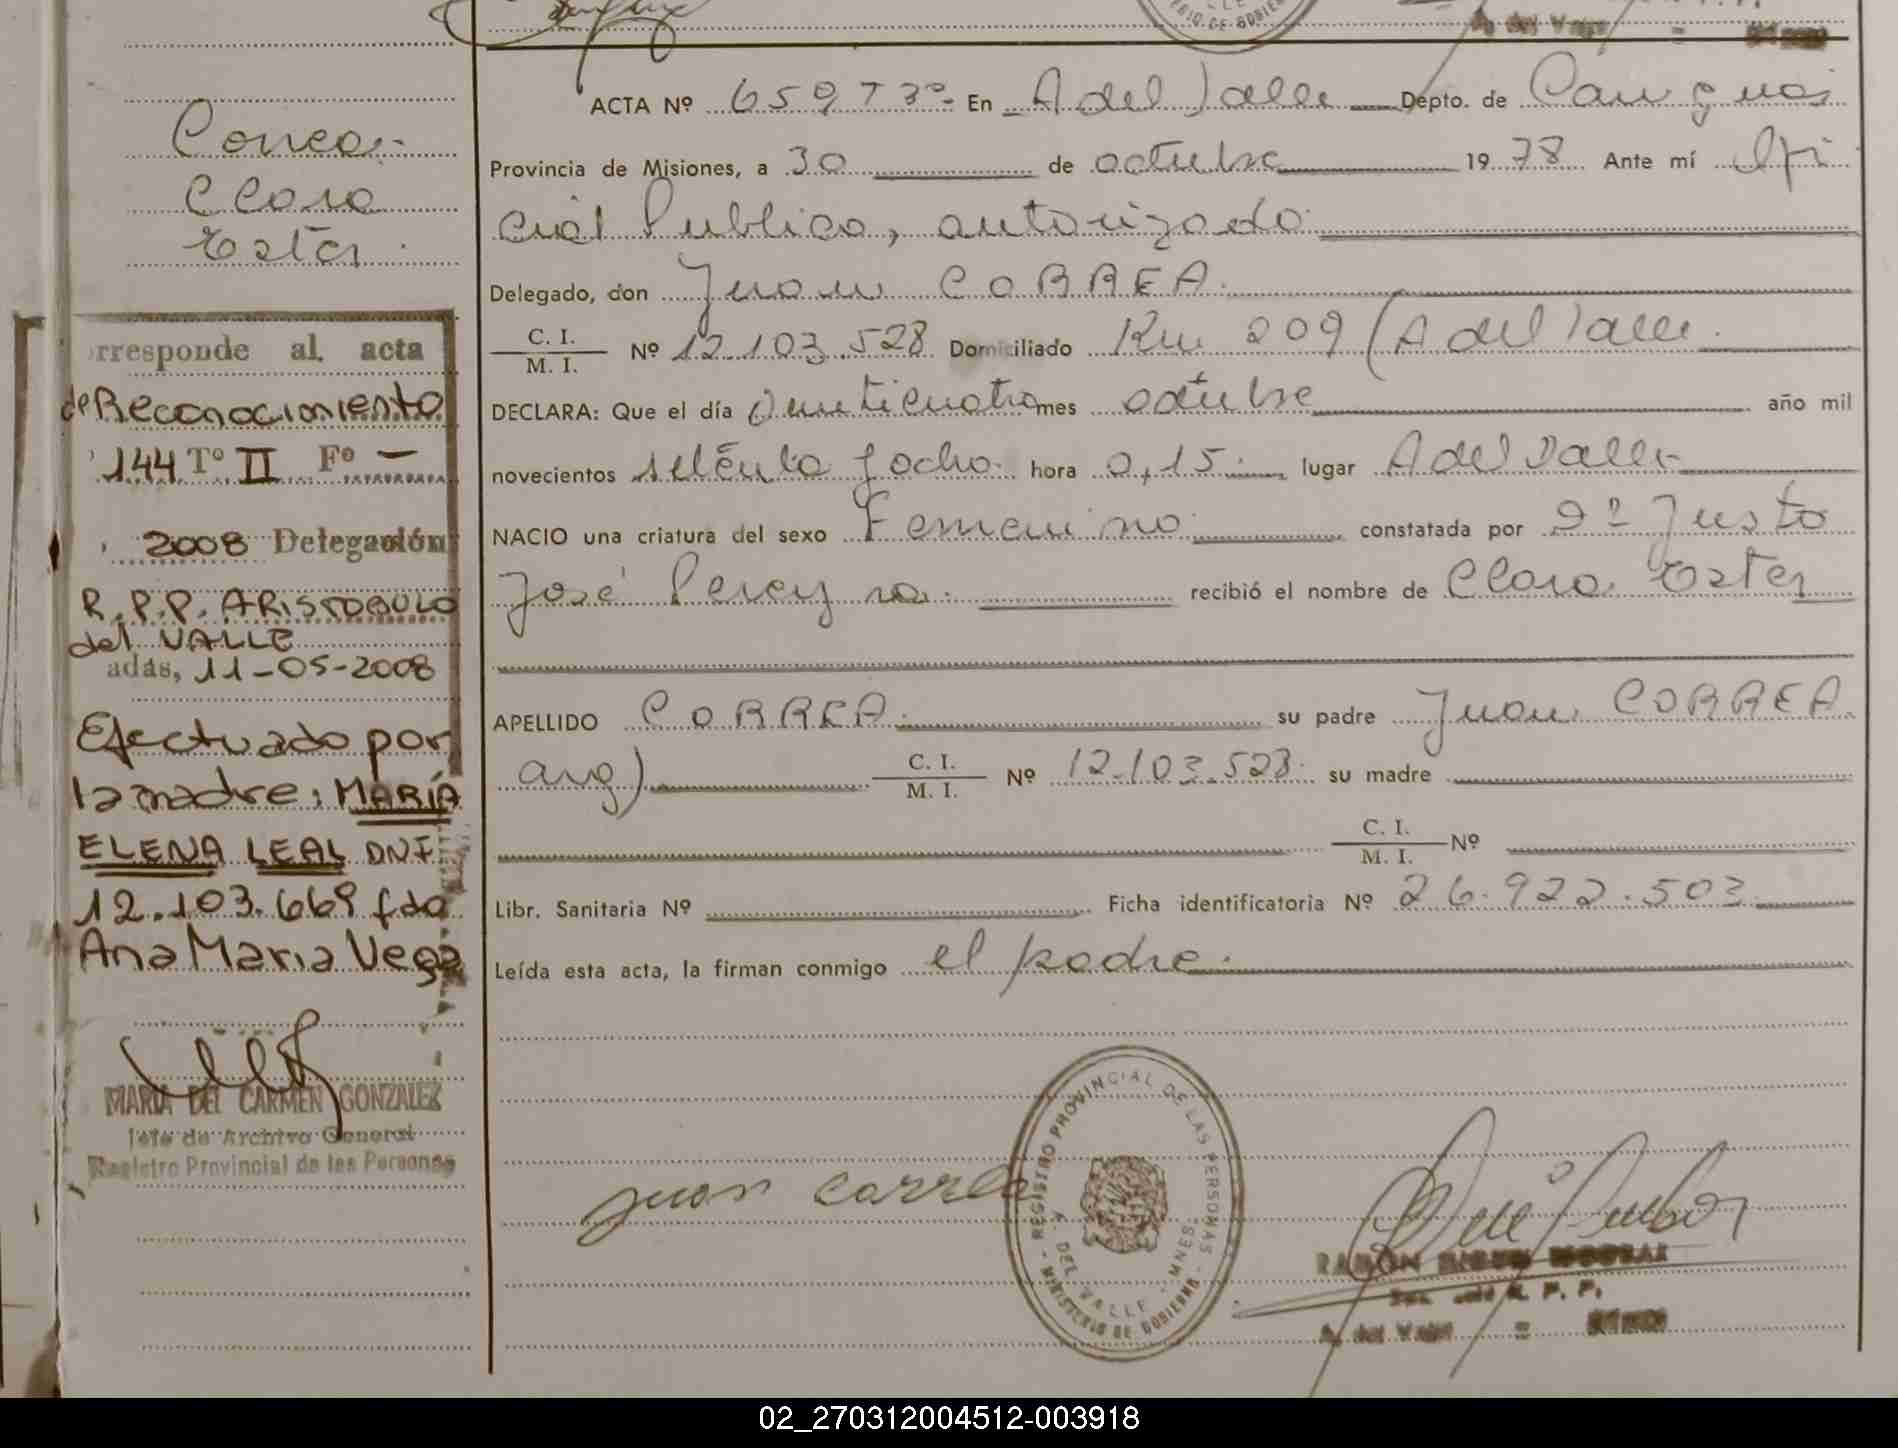 Correa
Clara
Ester
rresponde al. acta
de Reconocimiento
144 Tº II Fº —
2008 Delegación
R.P.P. ARISTOBULO
del VALLE
adas, 11-05-2008
Efectuado por
la madre: MARÍA
ELENA LEAL DNI
12.103.669 fdo
Ana Maria Vega
MARIA DEL CARMEN GONZALEZ
Jefe de Archivo General
Registro Provincial de las Personas
ACTA Nº 659 T 3º En A del Valle Depto. de Cainguas
Provincia de Misiones, a 30 de octubre 1978 Ante mí Ofi
cial Publico, autorizado
Delegado, don Juan CORREA.
C. I.
M. I. Nº 12.103.528 Domiciliado Km 209 (A del Valle.
DECLARA: Que el día Veinticuatro mes octubre año mil
novecientos setenta y ocho. hora 0,15. lugar A del Valle
NACIO una criatura del sexo Femenino constatada por Dº Justo
José Pereyra. recibió el nombre de Clara Ester
APELLIDO CORREA. su padre Juan CORREA
arg) C. I.
M. I. Nº 12.103.528. su madre
C. I.
M. I. Nº
Libr. Sanitaria Nº Ficha identificatoria Nº 26.922.503
Leída esta acta, la firman conmigo el padre.
juan correa
REGISTRO PROVINCIAL DE LAS PERSONAS
A DEL VALLE - MNES.
- MINISTERIO DE GOBIERNO -
RAMON
R. P. P.
A. del Valle =
02_270312004512-003918